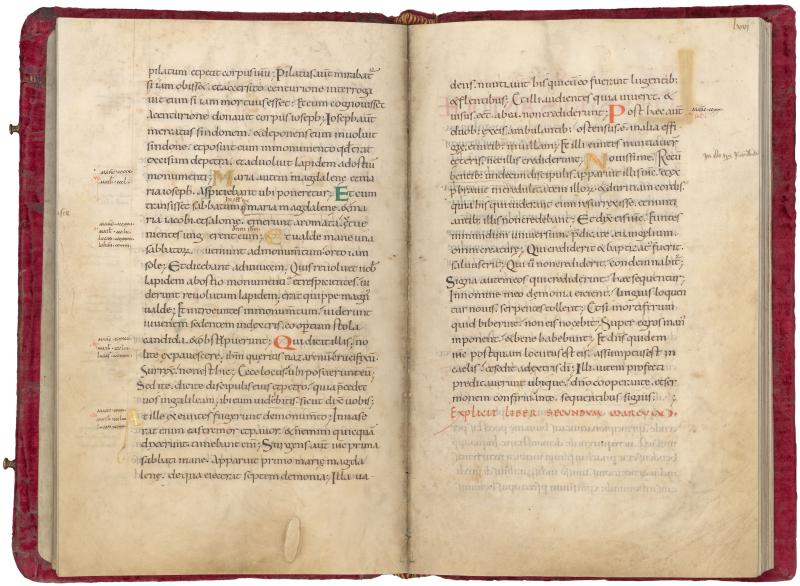 pilatum et petiit corpus ihu; Pilatus aut mirabat͛
si iam obisset. et accersito centurione interroga
uit eum si iam mortuus esset; Et cum cognouisset
a centurione donauit corpus ioseph; Ioseph aut
mercatus sindonem. & deponens eum inuoluit
sindone. et posuit eum in monumento qd erat
excisum de petra. et aduoluit lapidem ad ostiū
monumenti; Maria autem magdalene et ma
ria ioseph. Aspiciebant ubi poneretur; Et cum
transisset sabbatum maria magdalene & ma
ria iacobi. et salome. emerunt aromata. ut ue
nientes ungerent eum; Et ualde mane una
sabbatoꝝ. ueniunt ad monumentum. orto iam
sole; Et dicebant adinuicem. Quis reuoluet nob
lapidem ab ostio monumenti. et respicientes. ui
derunt reuolutum lapidem. erat quippe magn
ualde; Et introeuntes in monumentum. uiderunt
iuuenem sedentem in dextris. coopertum stola
candida. & obstipuerunt; Qui dicit illis; No
lite expauescere. ihm queritis nazarenū crucifixū.
Surrexit. non est hic; Ecce locus ubi posuerunt eū;
Sed ite. dicite discipulis eius et petro. quia precedet
uos in galileam; ibi eum uidebitis. sicut dixit uobis;
At ille exeuntes fugerunt de monumento; Inuase
rat enim eas tremor et pauor. & nemini quicquā
dixerunt. timebant eni; Surgens aut ihc prima
sabbati mane. Apparuit primo marię magda
lene. de qua eiecerat septem demonia; Illa ua
lxvi
dens. nuntiauit his qui cū eo fuerant lugentib;
& flentibus; Et illi audientes quia uiueret. &
uisus eēt ab ea. non crediderunt; Post hæc aut
duob; ex eis ambulantib; ostensus ē in alia effi
gie. euntib; in uillam; Et illi euntes nuntiauer̄
ceteris. nec illis crediderunt; Nouissime. Recū
bentib; undecim discipulis. apparuit illis ihc. et ex
probrauit incredulitatem illoꝝ. & duritiam cordis.
quia his qui uiderant eum resurrexisse. et nunti
antib; illis non credebant; Et dixit eis ihc. Euntes
in mundum uniuersum. predicate euangelium.
omni creaturę; Qui crediderit & baptizat͛ fuerit.
saluus erit; Qui ū non crediderit. condemnabit͛;
Signa autem eos qui crediderint. hæc sequentur;
In nomine meo demonia eicient. linguis loquen
tur nouis. serpentes tollent; Et si mortiferum
quid biberint. non eis nocebit; Super egros man
imponent. & bene habebunt; Et dns quidem
ihc postquam locutus est eis. assumptus est in
caelū. et sedit a dextris di; Illi autem profecti
predicauerunt ubique. dno cooperante. et ser
monem confirmante. sequentibus signis;
EXPLICIT LIBER SECUNDVM MARCVM